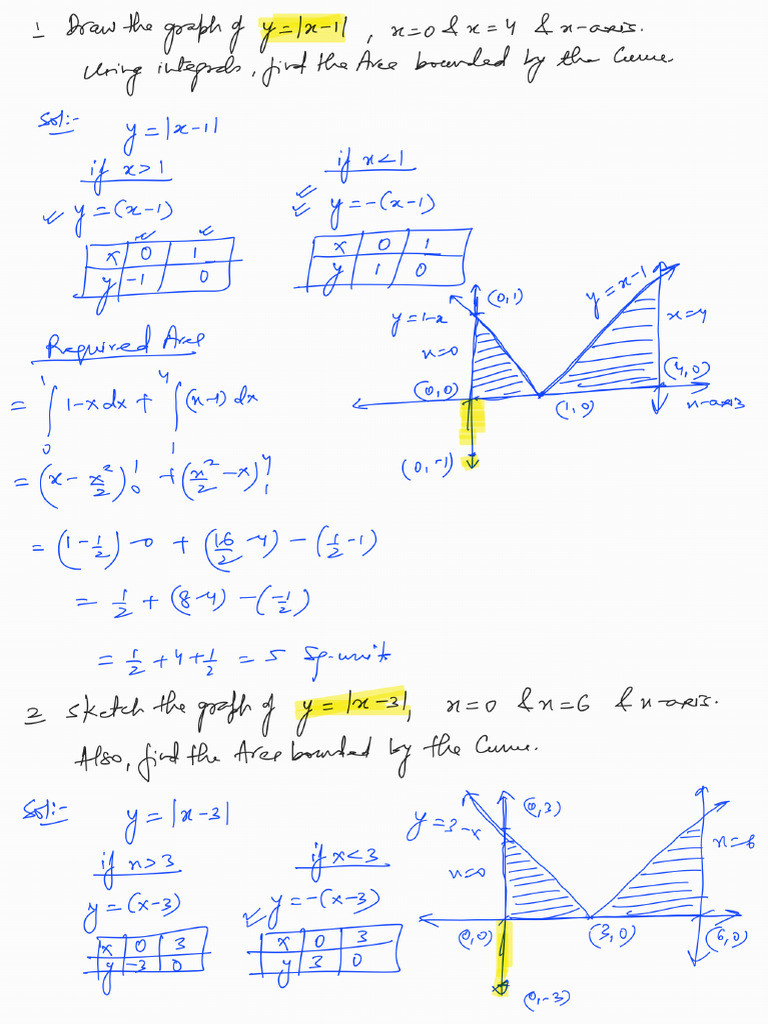 1 Draw the graph of y=|x-1|, x=0 & x=4 & x-axis.
Using integrals, find the Area bounded by the Curve.
Sol:-
y=|x-1|
if x>1
y=(x-1)
x 0 1
y -1 0
if x<1
y=-(x-1)
x 0 1
y 1 0
(0,1)
y=1-x
x=0
(0,0)
(0,-1)
(1,0)
y=x-1
x=4
(4,0)
x-axis
Required Area
= ∫₀¹ 1-x dx + ∫₁⁴ (x-1) dx
= (x - x²/2)₀¹ + (x²/2 - x)₁⁴
= (1 - 1/2) - 0 + (16/2 - 4) - (1/2 - 1)
= 1/2 + (8-4) - (-1/2)
= 1/2 + 4 + 1/2 = 5 Sq-units
2 Sketch the graph of y = |x-3|, x=0 & x=6 & x-axis.
Also, find the Area bounded by the Curve.
Sol:-
y=|x-3|
if x>3
y=(x-3)
x 0 3
y -3 0
if x<3
y=-(x-3)
x 0 3
y 3 0
(0,3)
y=3-x
x=0
x=6
(0,0)
(3,0)
(6,0)
(0,-3)